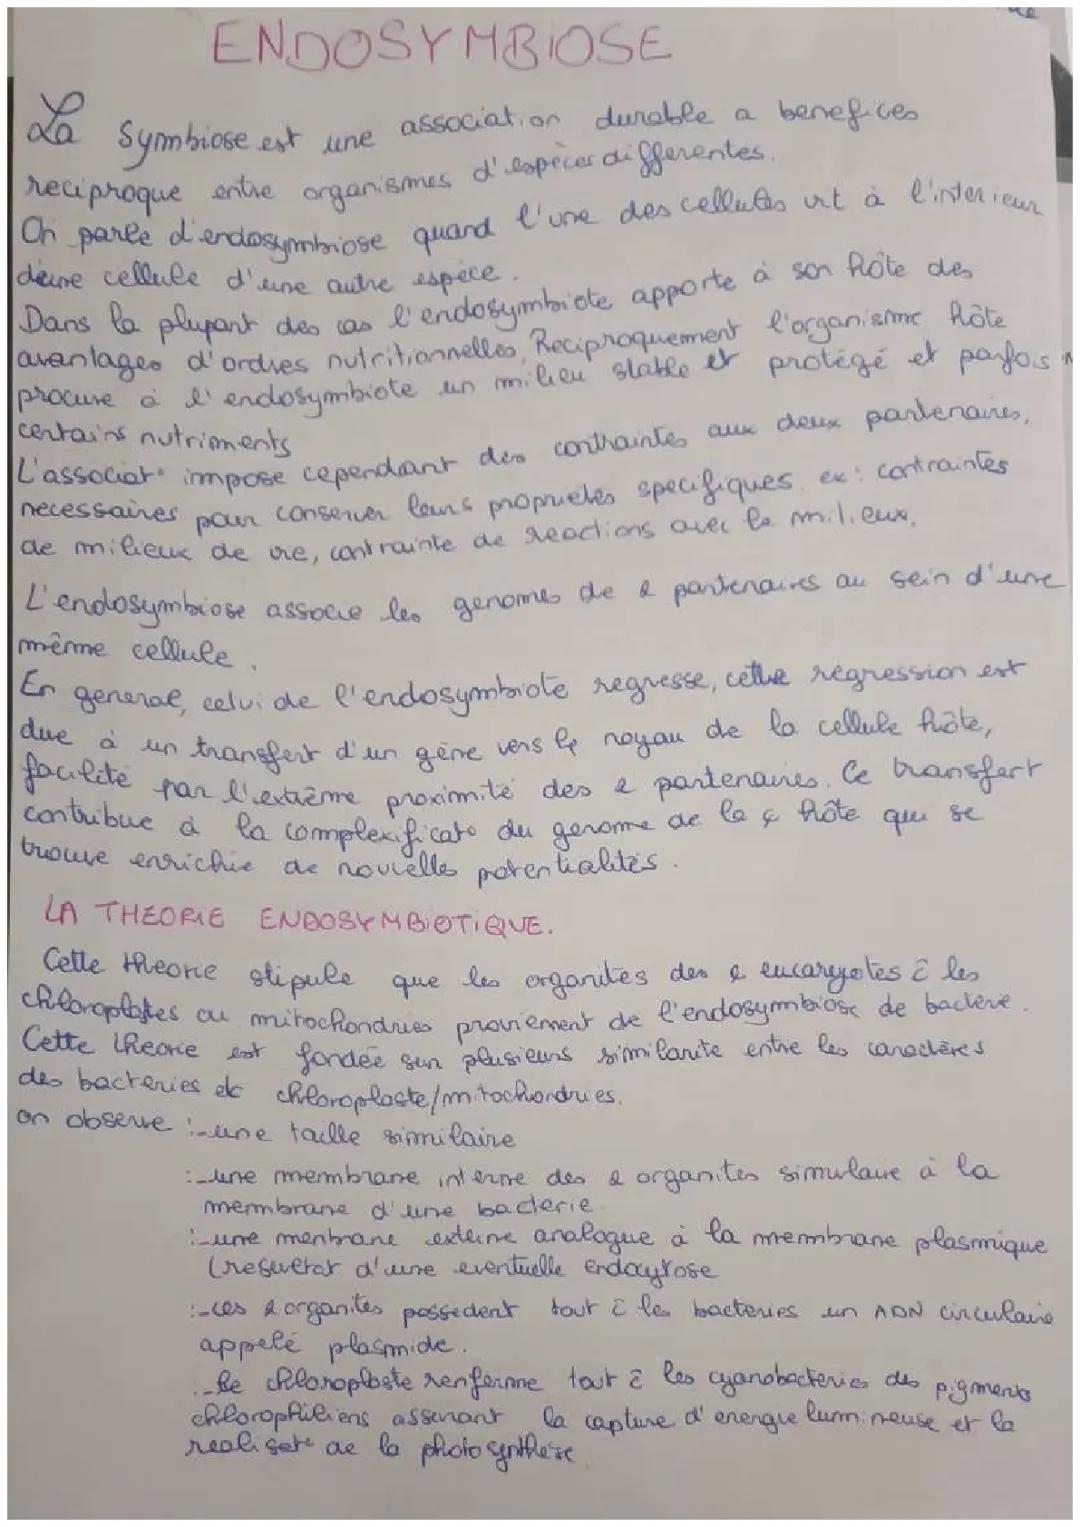 ENDOSYMBIOSE
La symbiose est une association durable a benefices
reciproque entre organismes d'espèces differentes.
On parle d'endosymbiose quand l'une des cellules vit à l'interieur
d'une cellule d'une autre espèce.
Dans la plupart des cas l'endosymbiote apporte à son hôte des
avantages d'ordres nutritionnelles, Reciproquement l'organisme hôte
procure à l'endosymbiote un milieu stable et protégé et parfois
certains nutriments
L'associat° impose cependant des contraintes aux deux partenaires,
necessaires pour conserver leurs proprietes specifiques. ex: contraintes
de milieux de vie, contrainte de reactions avec le milieux.
L'endosymbiose associe les genomes de 2 partenaires au sein d'une
même cellule.
En general, celui de l'endosymbiote regresse, cette regression est
due à un transfert d'un gène vers le noyau de la cellule hôte,
facilité par l'extrême proximité des 2 partenaires. Ce transfert
contribue à la complexificat° du genome de la ç hôte qui se
trouve enrichie de nouvelles potentialités.
LA THEORIE ENDOSYMBIOTIQUE.
Cette theorie stipule que les organites des ç eucaryotes c̄ les
chloroplastes ou mitochondries proviennent de l'endosymbiose de bacterie.
Cette theorie est fondée sur plusieurs similarite entre les caractères
des bacteries et chloroplaste/mitochondries.
on observe :-une taille similaire
:-une membrane interne des 2 organites similaire à la
membrane d'une bacterie.
:-une menbrane externe analogue à la membrane plasmique
(resultat d'une eventuelle endocytose
:-ces 2 organites possedent tout c̄ les bacteries un ADN circulaire
appelé plasmide.
:-le chloroplaste renferme tout c̄ les cyanobacteries des pigments
chlorophiliens assurant la capture d'energie lumineuse et la
realisat° de la photosynthèse.